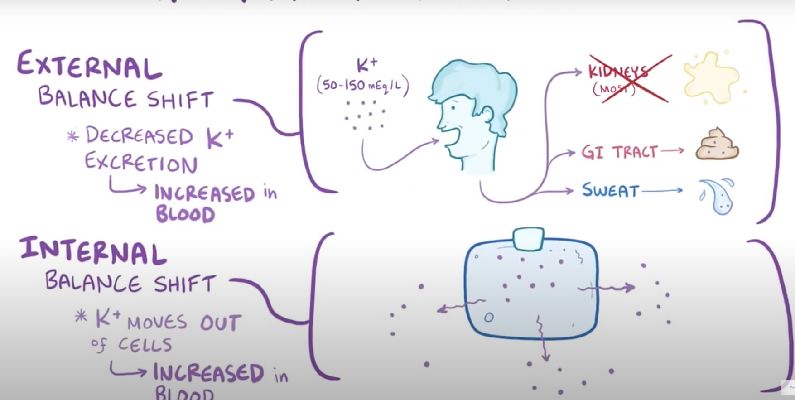 EXTERNAL
BALANCE SHIFT
* DECREASED K+
EXCRETION
↳ INCREASED in
BLOOD
K+
(50-150 mEq/L)
KIDNEYS
(MOST)
GI TRACT
SWEAT
INTERNAL
BALANCE SHIFT
* K+ MOVES OUT
of CELLS
↳ INCREASED in
BLOOD